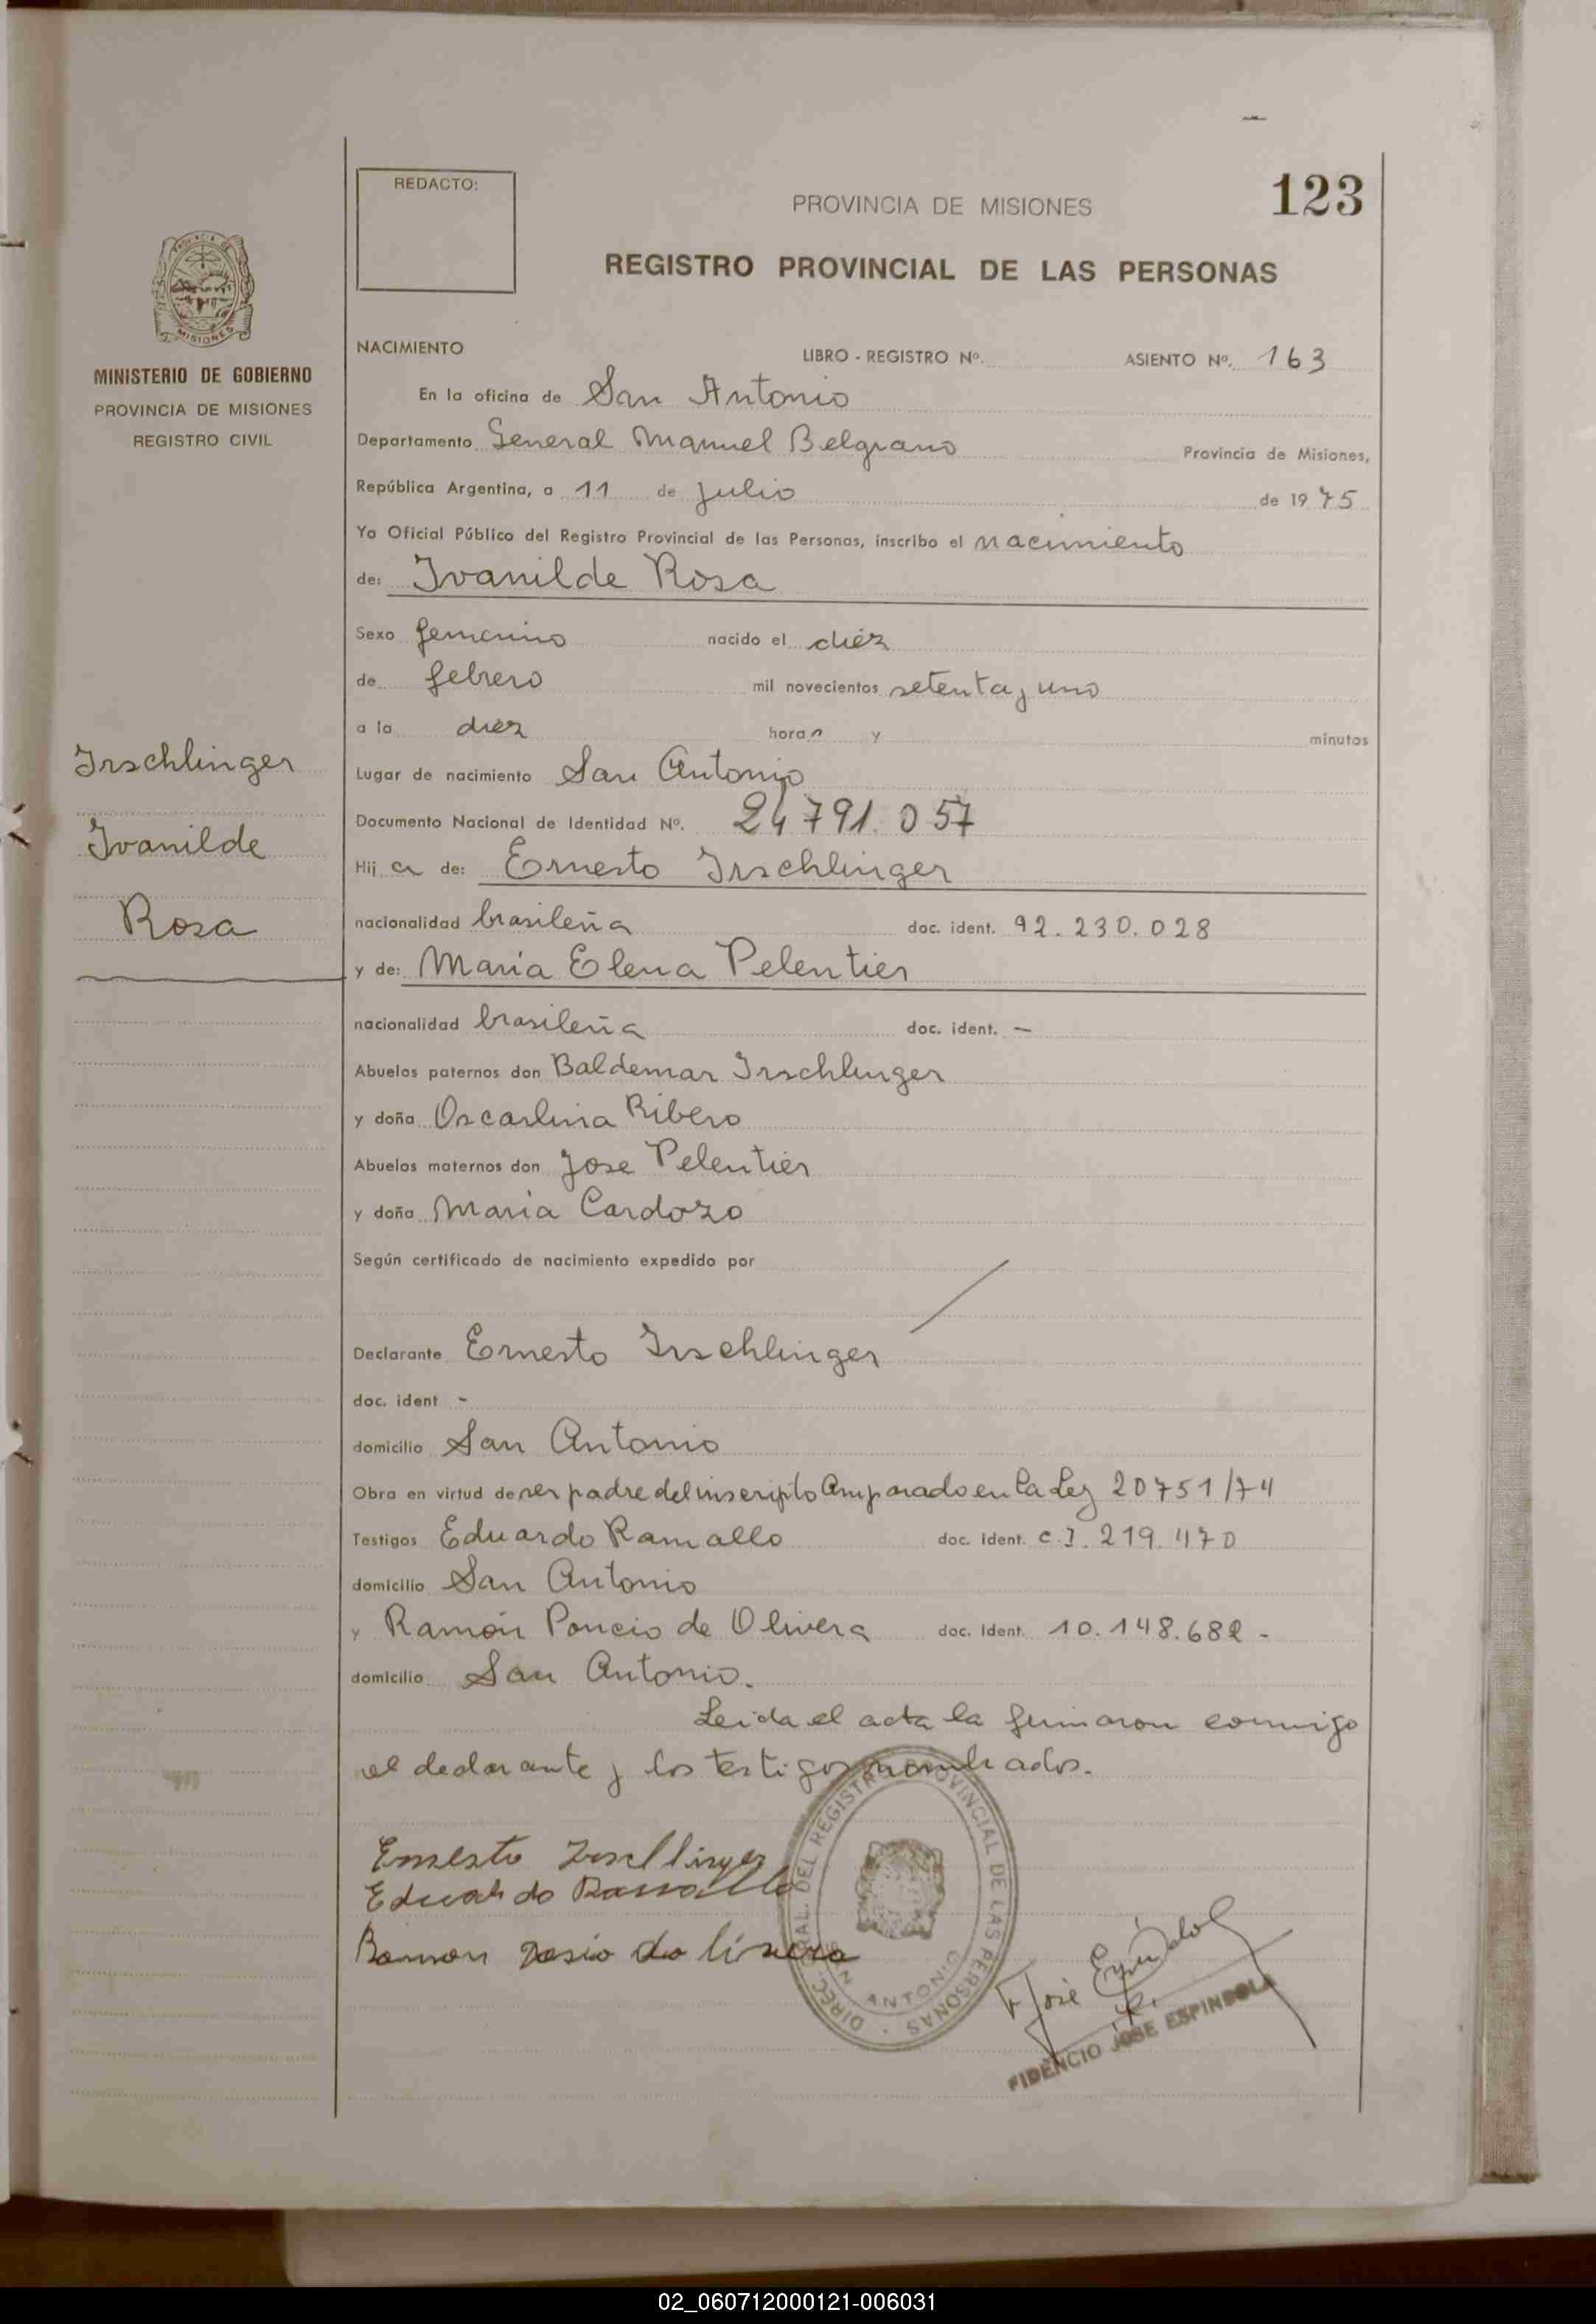 REDACTO:
PROVINCIA DE MISIONES
123
REGISTRO PROVINCIAL DE LAS PERSONAS
PROVINCIA DE
MISIONES
MINISTERIO DE GOBIERNO
PROVINCIA DE MISIONES
REGISTRO CIVIL
Irschlinger
Ivanilde
Rosa
NACIMIENTO LIBRO - REGISTRO Nº. ASIENTO Nº. 163
En la oficina de San Antonio
Departamento General Manuel Belgrano Provincia de Misiones,
República Argentina, a 11 de julio de 1975
Yo Oficial Público del Registro Provincial de las Personas, inscribo el nacimiento
de: Ivanilde Rosa
Sexo femenino nacido el diéz
de febrero mil novecientos setenta y uno
a la diéz horas y minutos
Lugar de nacimiento San Antonio
Documento Nacional de Identidad Nº. 24791.057
Hij a de: Ernesto Irschlinger
nacionalidad brasileña doc. ident. 92.230.028
y de: Maria Elena Pelentier
nacionalidad brasileña doc. ident. —
Abuelos paternos don Baldemar Irschlinger
y doña Oscarlina Ribero
Abuelos maternos don Jose Pelentier
y doña Maria Cardozo
Según certificado de nacimiento expedido por
Declarante Ernesto Irschlinger
doc. ident -
domicilio San Antonio
Obra en virtud de ser padre del inscripto Amparado en la Ley 20751/74
Testigos Eduardo Ramallo doc. Ident. C.I. 219.470
domicilio San Antonio
y Ramón Poncio de Olivera doc. Ident. 10.148.682 -
domicilio San Antonio.
Leida el acta la firmaron conmigo
el declarante y los testigos nombrados.
Ernesto Irschlinger
Eduardo Ramallo
Ramon
DIREC. GRAL. DEL REGISTRO PROVINCIAL DE LAS PERSONAS
SAN ANTONIO
F José Espíndola
FIDENCIO JOSE ESPINDOLA
02_060712000121-006031